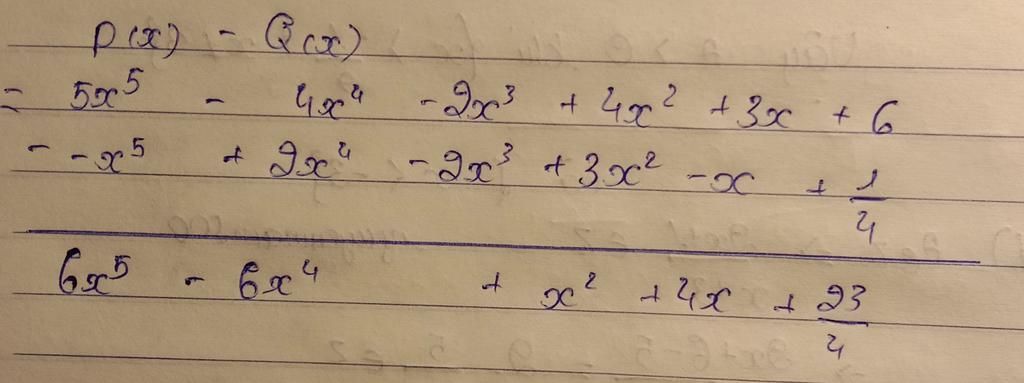 P(x) - Q(x)
= 5x⁵ - 4x⁴ - 2x³ + 4x² + 3x + 6
- -x⁵ + 2x⁴ - 2x³ + 3x² - x + 1/4
6x⁵ - 6x⁴ + x² + 4x + 23/4